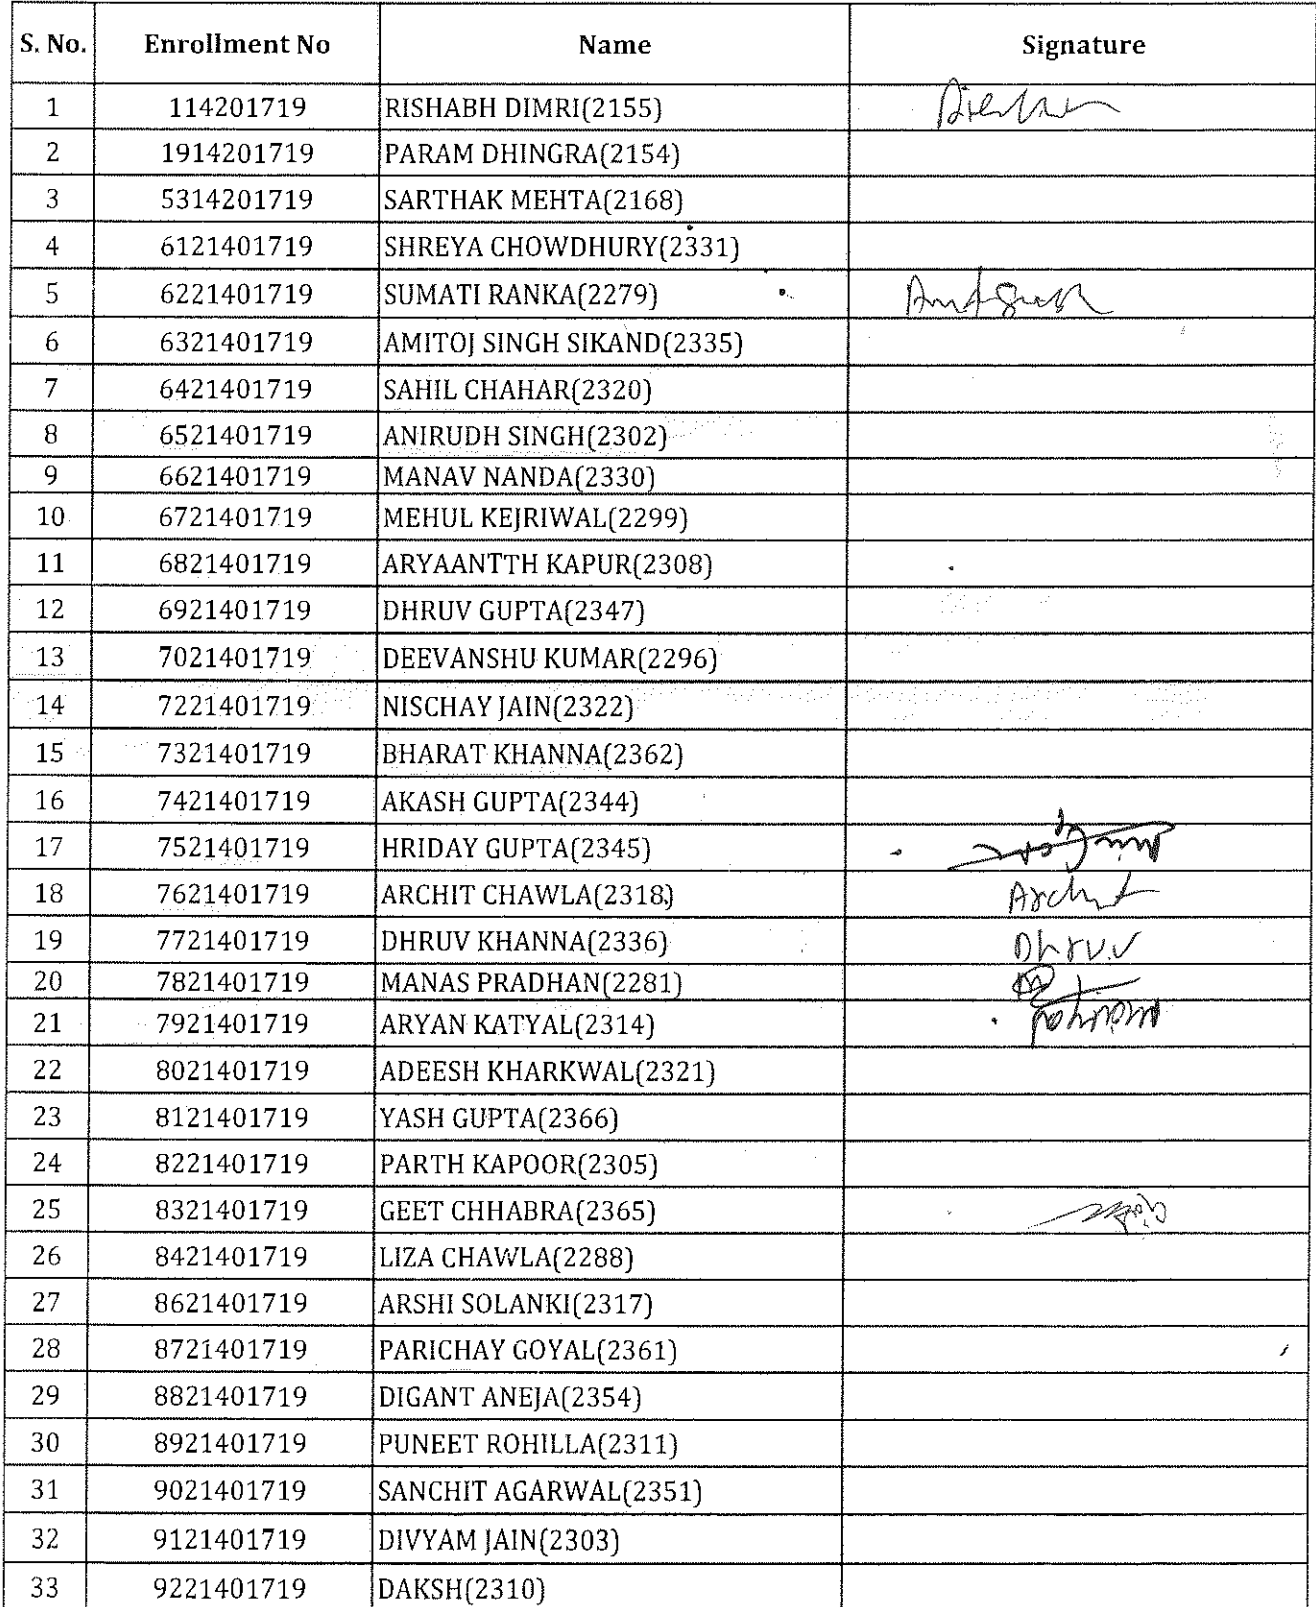 S. No. Enrollment No Name Signature
1 114201719 RISHABH DIMRI(2155)
2 1914201719 PARAM DHINGRA(2154)
3 5314201719 SARTHAK MEHTA(2168)
4 6121401719 SHREYA CHOWDHURY(2331)
5 6221401719 SUMATI RANKA(2279)
6 6321401719 AMITOJ SINGH SIKAND(2335)
7 6421401719 SAHIL CHAHAR(2320)
8 6521401719 ANIRUDH SINGH(2302)
9 6621401719 MANAV NANDA(2330)
10 6721401719 MEHUL KEJRIWAL(2299)
11 6821401719 ARYAANTTH KAPUR(2308)
12 6921401719 DHRUV GUPTA(2347)
13 7021401719 DEEVANSHU KUMAR(2296)
14 7221401719 NISCHAY JAIN(2322)
15 7321401719 BHARAT KHANNA(2362)
16 7421401719 AKASH GUPTA(2344)
17 7521401719 HRIDAY GUPTA(2345)
18 7621401719 ARCHIT CHAWLA(2318) Archit
19 7721401719 DHRUV KHANNA(2336) Dhruv
20 7821401719 MANAS PRADHAN(2281)
21 7921401719 ARYAN KATYAL(2314)
22 8021401719 ADEESH KHARKWAL(2321)
23 8121401719 YASH GUPTA(2366)
24 8221401719 PARTH KAPOOR(2305)
25 8321401719 GEET CHHABRA(2365)
26 8421401719 LIZA CHAWLA(2288)
27 8621401719 ARSHI SOLANKI(2317)
28 8721401719 PARICHAY GOYAL(2361)
29 8821401719 DIGANT ANEJA(2354)
30 8921401719 PUNEET ROHILLA(2311)
31 9021401719 SANCHIT AGARWAL(2351)
32 9121401719 DIVYAM JAIN(2303)
33 9221401719 DAKSH(2310)